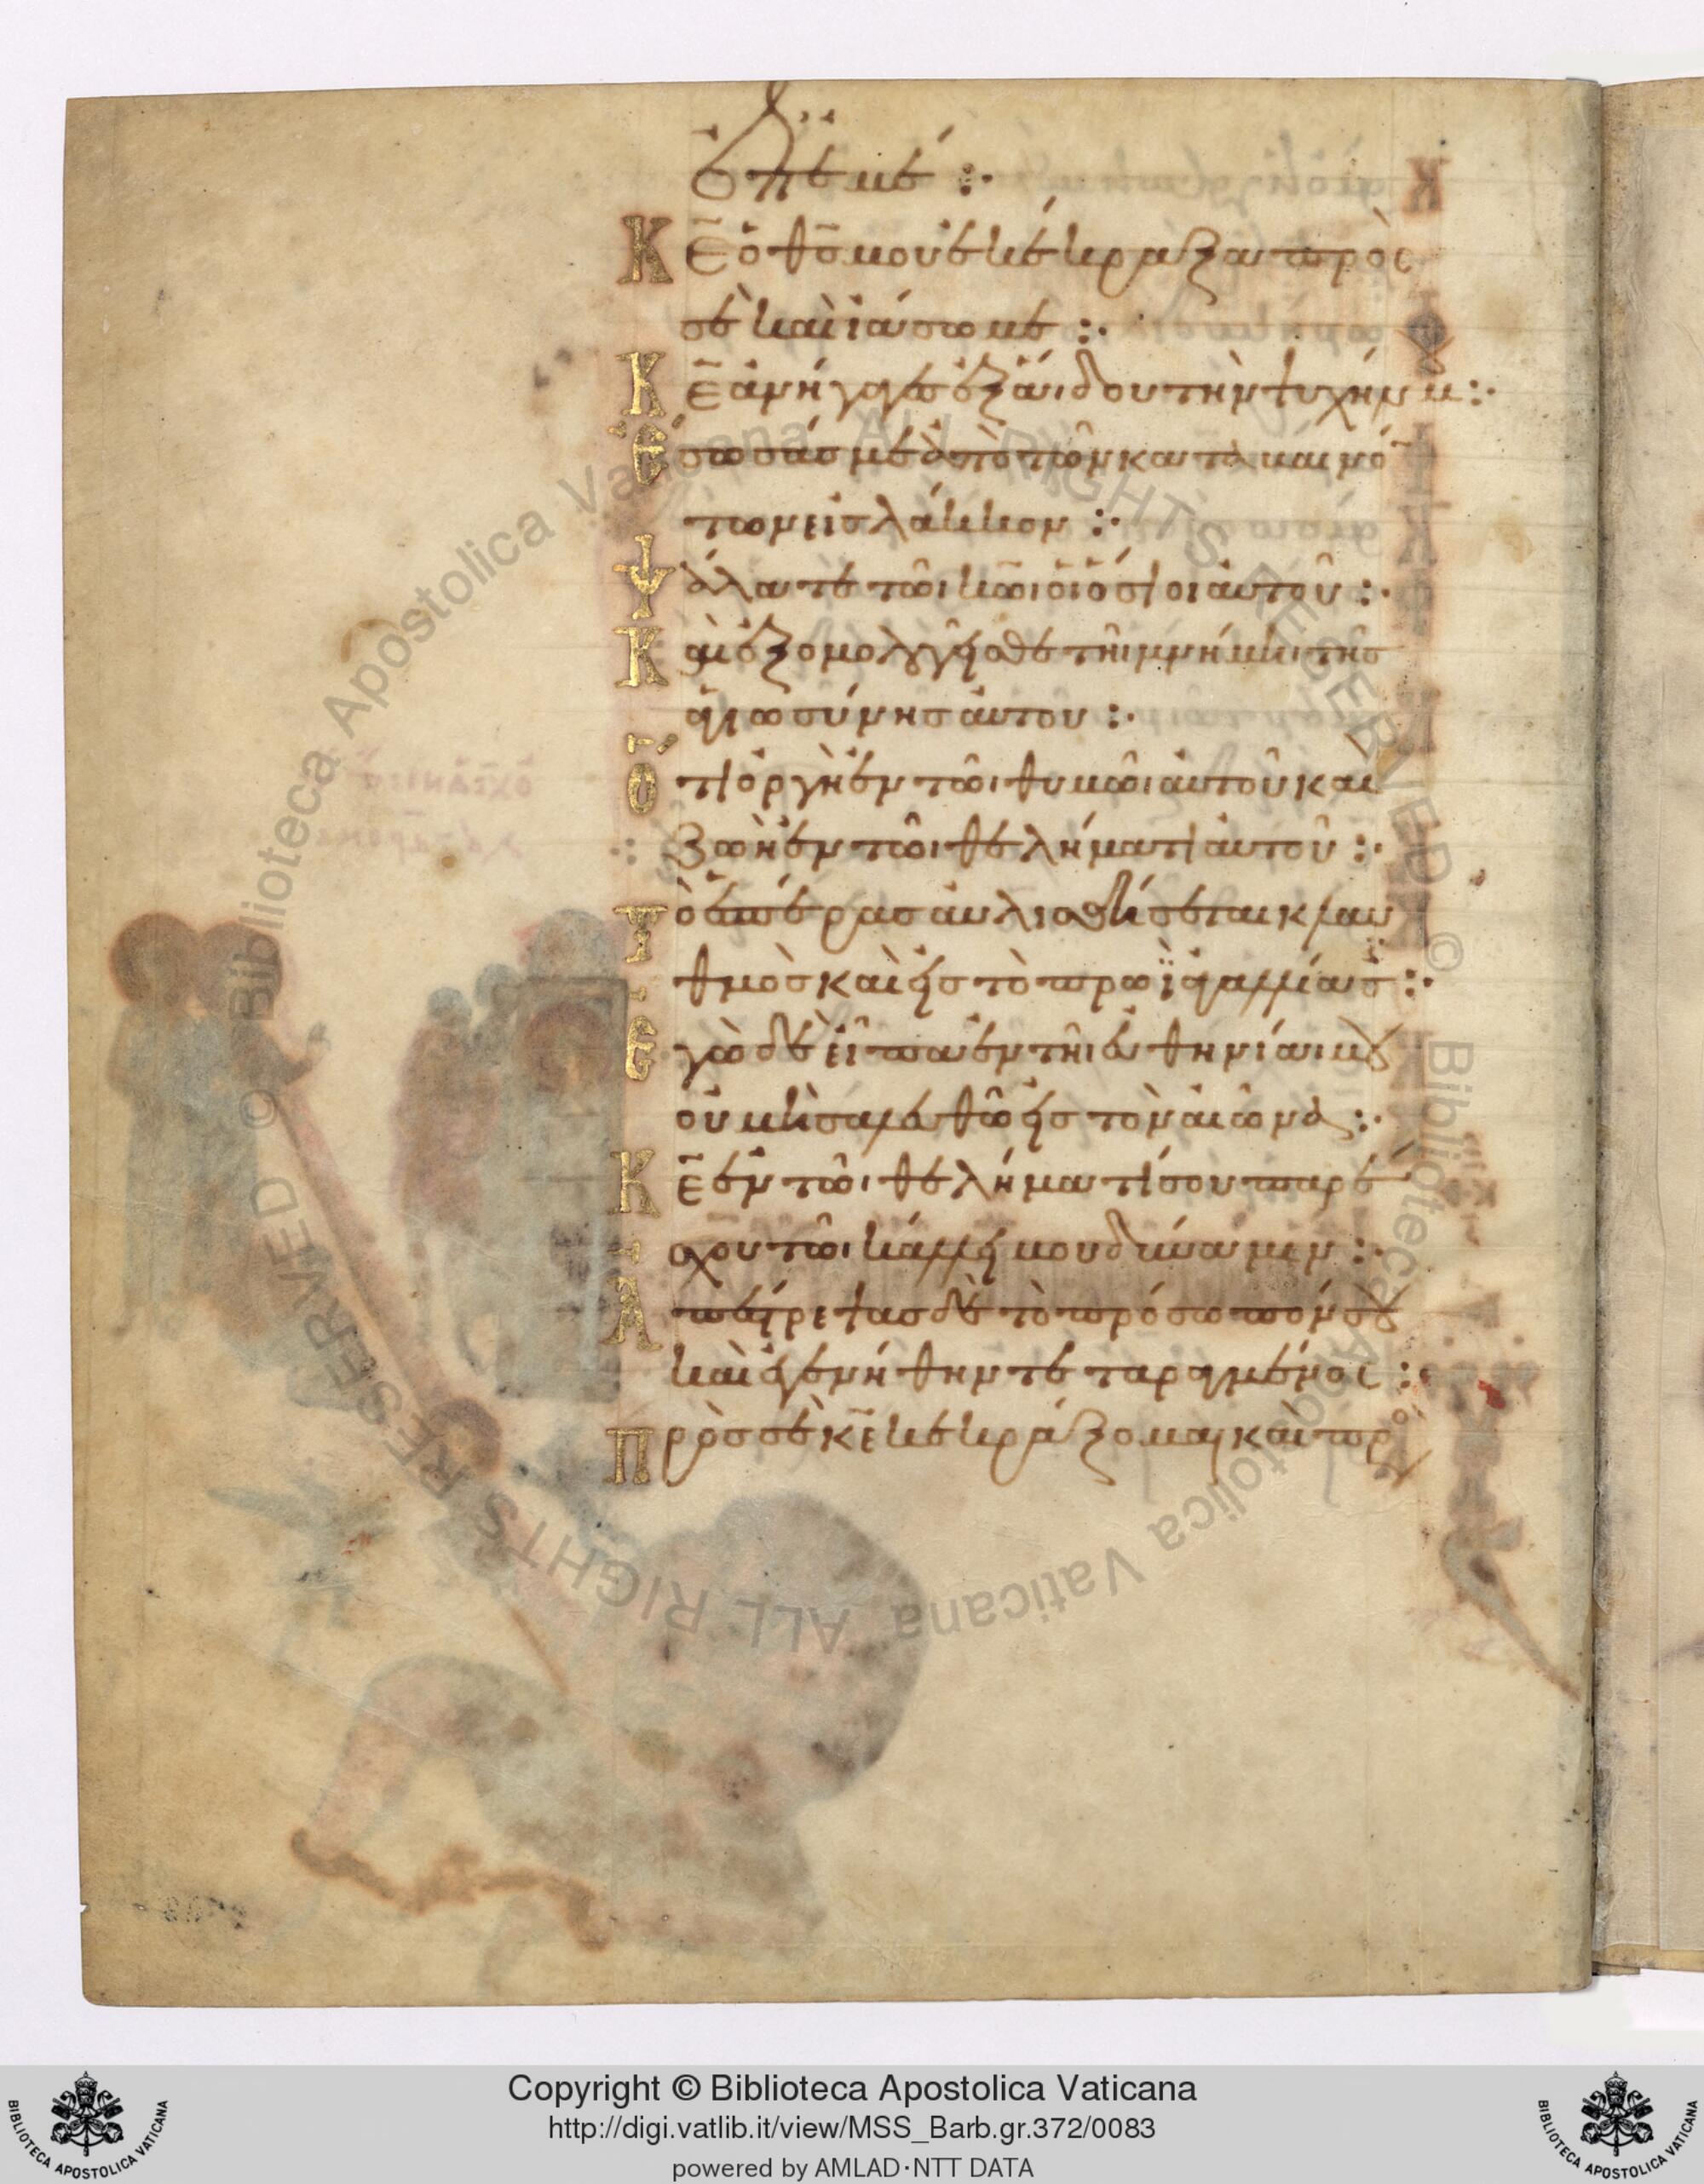 ἐπ' ἐμέ :·
Κ̅Ε̅ ὁ θ̅ς̅ μου ἐκέκραξα πρὸς
σὲ καὶ ἰάσω με :·
Κ̅Ε̅ ἀνήγαγες ἐξ ἅιδου τὴν ψυχήν μου :·
Ἔσωσάς με ἀπὸ τῶν καταβαινόν
των εἰς λάκκον :·
Ψάλατε τῶι κ̅ω̅ι οἱ ὅσιοι αὐτοῦ :·
Καὶ ἐξομολογεῖσθε τῆι μνήμηι τῆς
ἁγιωσύνης αὐτου :·
Ὅτι ὀργὴ ἐν τῶι θυμῶι αὐτοῦ καὶ
ζωὴ ἐν τῶι θελήματι αὐτοῦ :·
Τὸ ἑσπέρας αὐλισθήσεται κλαυ
θμὸς καὶ εἰς τὸ πρωῒ ἀγαλλίασις :·
Ἐγὼ δὲ εἶπα ἐν τῆι εὐθηνίαι μου
οὐ μὴ σαλευθῶ εἰς τὸν αἰῶνα :·
Κ̅Ε̅ ἐν τῶι θελήματί σου παρέ
σχου τῶι κάλλει μου δύναμιν :·
Ἀπέστρεψας δὲ τὸ πρόσωπόν σου
καὶ ἐγενήθην τεταραγμένος :·
Πρὸς σὲ κ̅ε̅ κεκράξομαι καὶ πρὸς
Copyright © Biblioteca Apostolica Vaticana
http://digi.vatlib.it/view/MSS_Barb.gr.372/0083
powered by AMLAD·NTT DATA
BIBLIOTECA APOSTOLICA VATICANA
BIBLIOTECA APOSTOLICA VATICANA
Biblioteca Apostolica Vaticana ALL RIGHTS RESERVED ©
Biblioteca Apostolica Vaticana ALL RIGHTS RESERVED ©